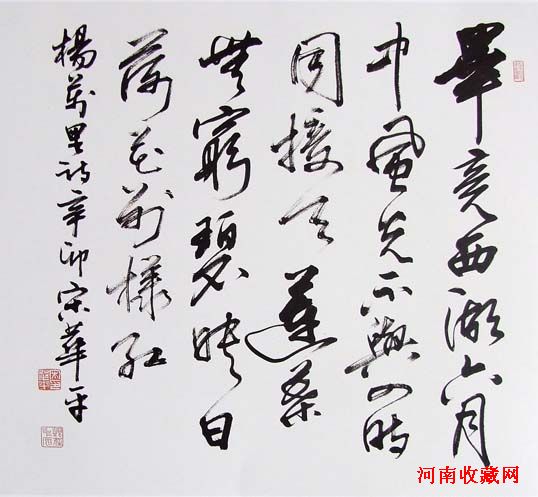 畢竟西湖六月
中風光不與四時
同接天蓮葉
無窮碧映日
荷花别樣紅
楊萬里詩辛卯宋華平
河南收藏网